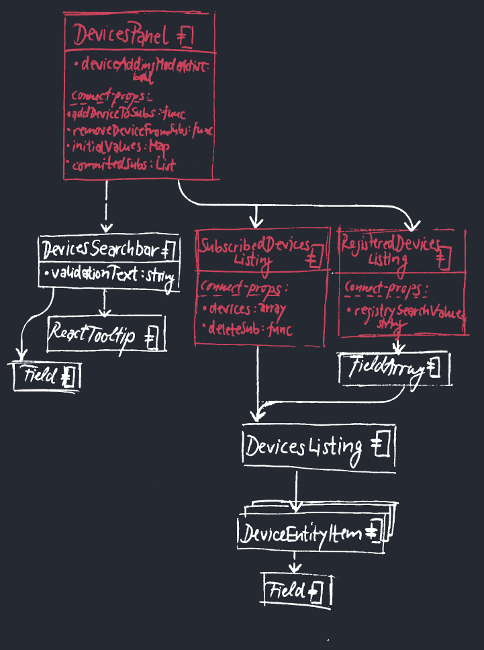 DevicesPanel
• deviceAddingModeActive:
bool
connect-props:
• addDeviceToSubs: func
• removeDeviceFromSubs: func
• initialValues: Map
• commitedSubs: List
DevicesSearchbar
• validationText: string
SubscribedDevices
Listing
connect-props:
• devices: array
• deleteSub: func
RegisteredDevices
Listing
connect-props:
• registrySearchValue:
string
ReactTooltip
Field
FieldArray
DevicesListing
DeviceEntityItem
Field